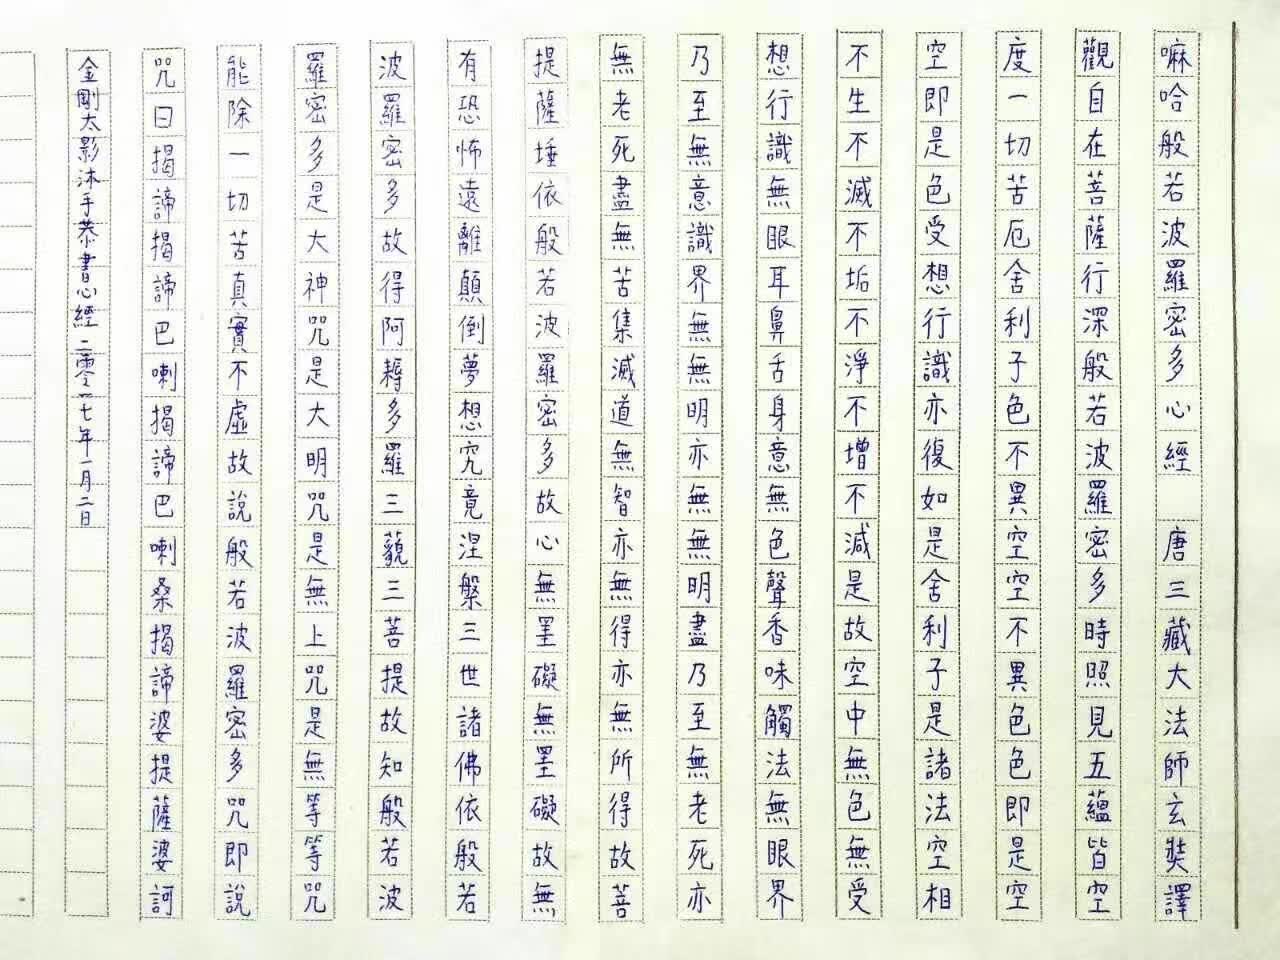 嘛哈般若波羅密多心經　唐三藏大法師玄奘譯
觀自在菩薩行深般若波羅密多時照見五蘊皆空
度一切苦厄舍利子色不異空空不異色色即是空
空即是色受想行識亦復如是舍利子是諸法空相
不生不滅不垢不淨不增不減是故空中無色無受
想行識無眼耳鼻舌身意無色聲香味觸法無眼界
乃至無意識界無無明亦無無明盡乃至無老死亦
無老死盡無苦集滅道無智亦無得亦無所得故菩
提薩埵依般若波羅密多故心無罣礙無罣礙故無
有恐怖遠離顛倒夢想究竟涅槃三世諸佛依般若
波羅密多故得阿耨多羅三藐三菩提故知般若波
羅密多是大神咒是大明咒是無上咒是無等等咒
能除一切苦真實不虛故說般若波羅密多咒即說
咒曰揭諦揭諦巴喇揭諦巴喇桑揭諦婆提薩婆訶
金剛太影沐手恭書心經二零一七年一月二日